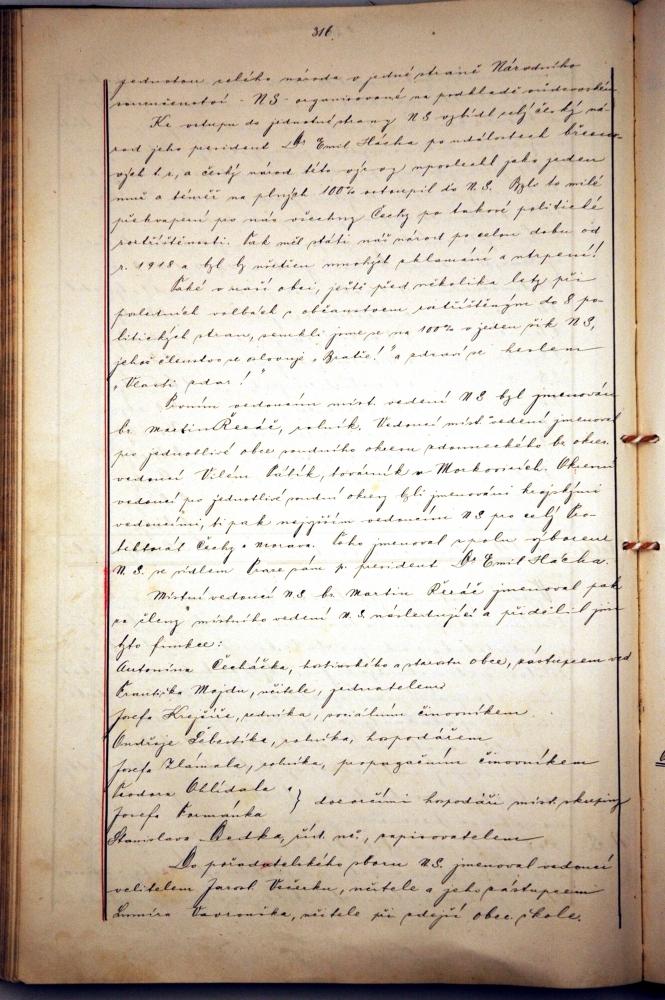 316.
jednotou celého národa v jedné straně Národního
souručenství - NS - organisované na podkladě vůdcovském.
Ke vstupu do jednotné strany NS vyzval celý český ná-
rod jeho president Dr Emil Hácha po událostech březno-
vých t. r., a český národ této výzvy uposlechl jako jeden
muž a téměř na plných 100% vstoupil do N.S. Bylo to milé
překvapení pro nás všechny Čechy po takové politické
roztříštěnosti. Tak měl státi náš národ po celou dobu od
r. 1918 a byl by ušetřen mnohých zklamání a utrpení!
Také v naší obci, ještě před několika lety při
posledních volbách s občanstvem roztříštěným do 8 po-
litických stran, semkli jsme se na 100% v jeden šik NS,
jehož členstvo se oslovuje „Bratře!" a zdraví se heslem
„Vlasti zdar!"
Prvním vedoucím míst. vedení NS byl jmenován
br. Martin Řezáč, rolník. Vedoucí míst. vedení jmenoval
pro jednotlivé obce soudního okresu zdouneckého br. okres.
vedoucí Vilém Pálík, továrník v Morkovicích. Okresní
vedoucí pro jednotlivé soudní okresy byli jmenováni krajskými
vedoucími, ti pak nejvyšším vedoucím NS pro celý Pro-
tektorát Čechy a Morava. Toho jmenoval spolu výborem
N.S. se sídlem Praze sám p. president Dr Emil Hácha.
Místní vedoucí NS br. Martin Řezáč jmenoval pak
za členy místního vedení N.S. následující a přidělil jim
tyto funkce:
Antonína Čecháčka, hostinského a starostu obce, zástupcem ved.
Františka Majdu, učitele, jednatelem
Josefa Krejčíře, rolníka, sociálním činovníkem
Ondřeje Šebestíka, rolníka, hospodářem
Josefa Zlámala, rolníka, propagačním činovníkem
Teodora Ohlídala a
Josefa Formánka } dozorčími hospodáři míst. skupiny
Stanislava Bedka, říd. uč., zapisovatelem
Do pořadatelského sboru N.S. jmenoval vedoucí
velitelem Jarosl. Večerku, učitele a jeho zástupcem
Lumíra Vavrouška, učitele při zdejší obec. škole.